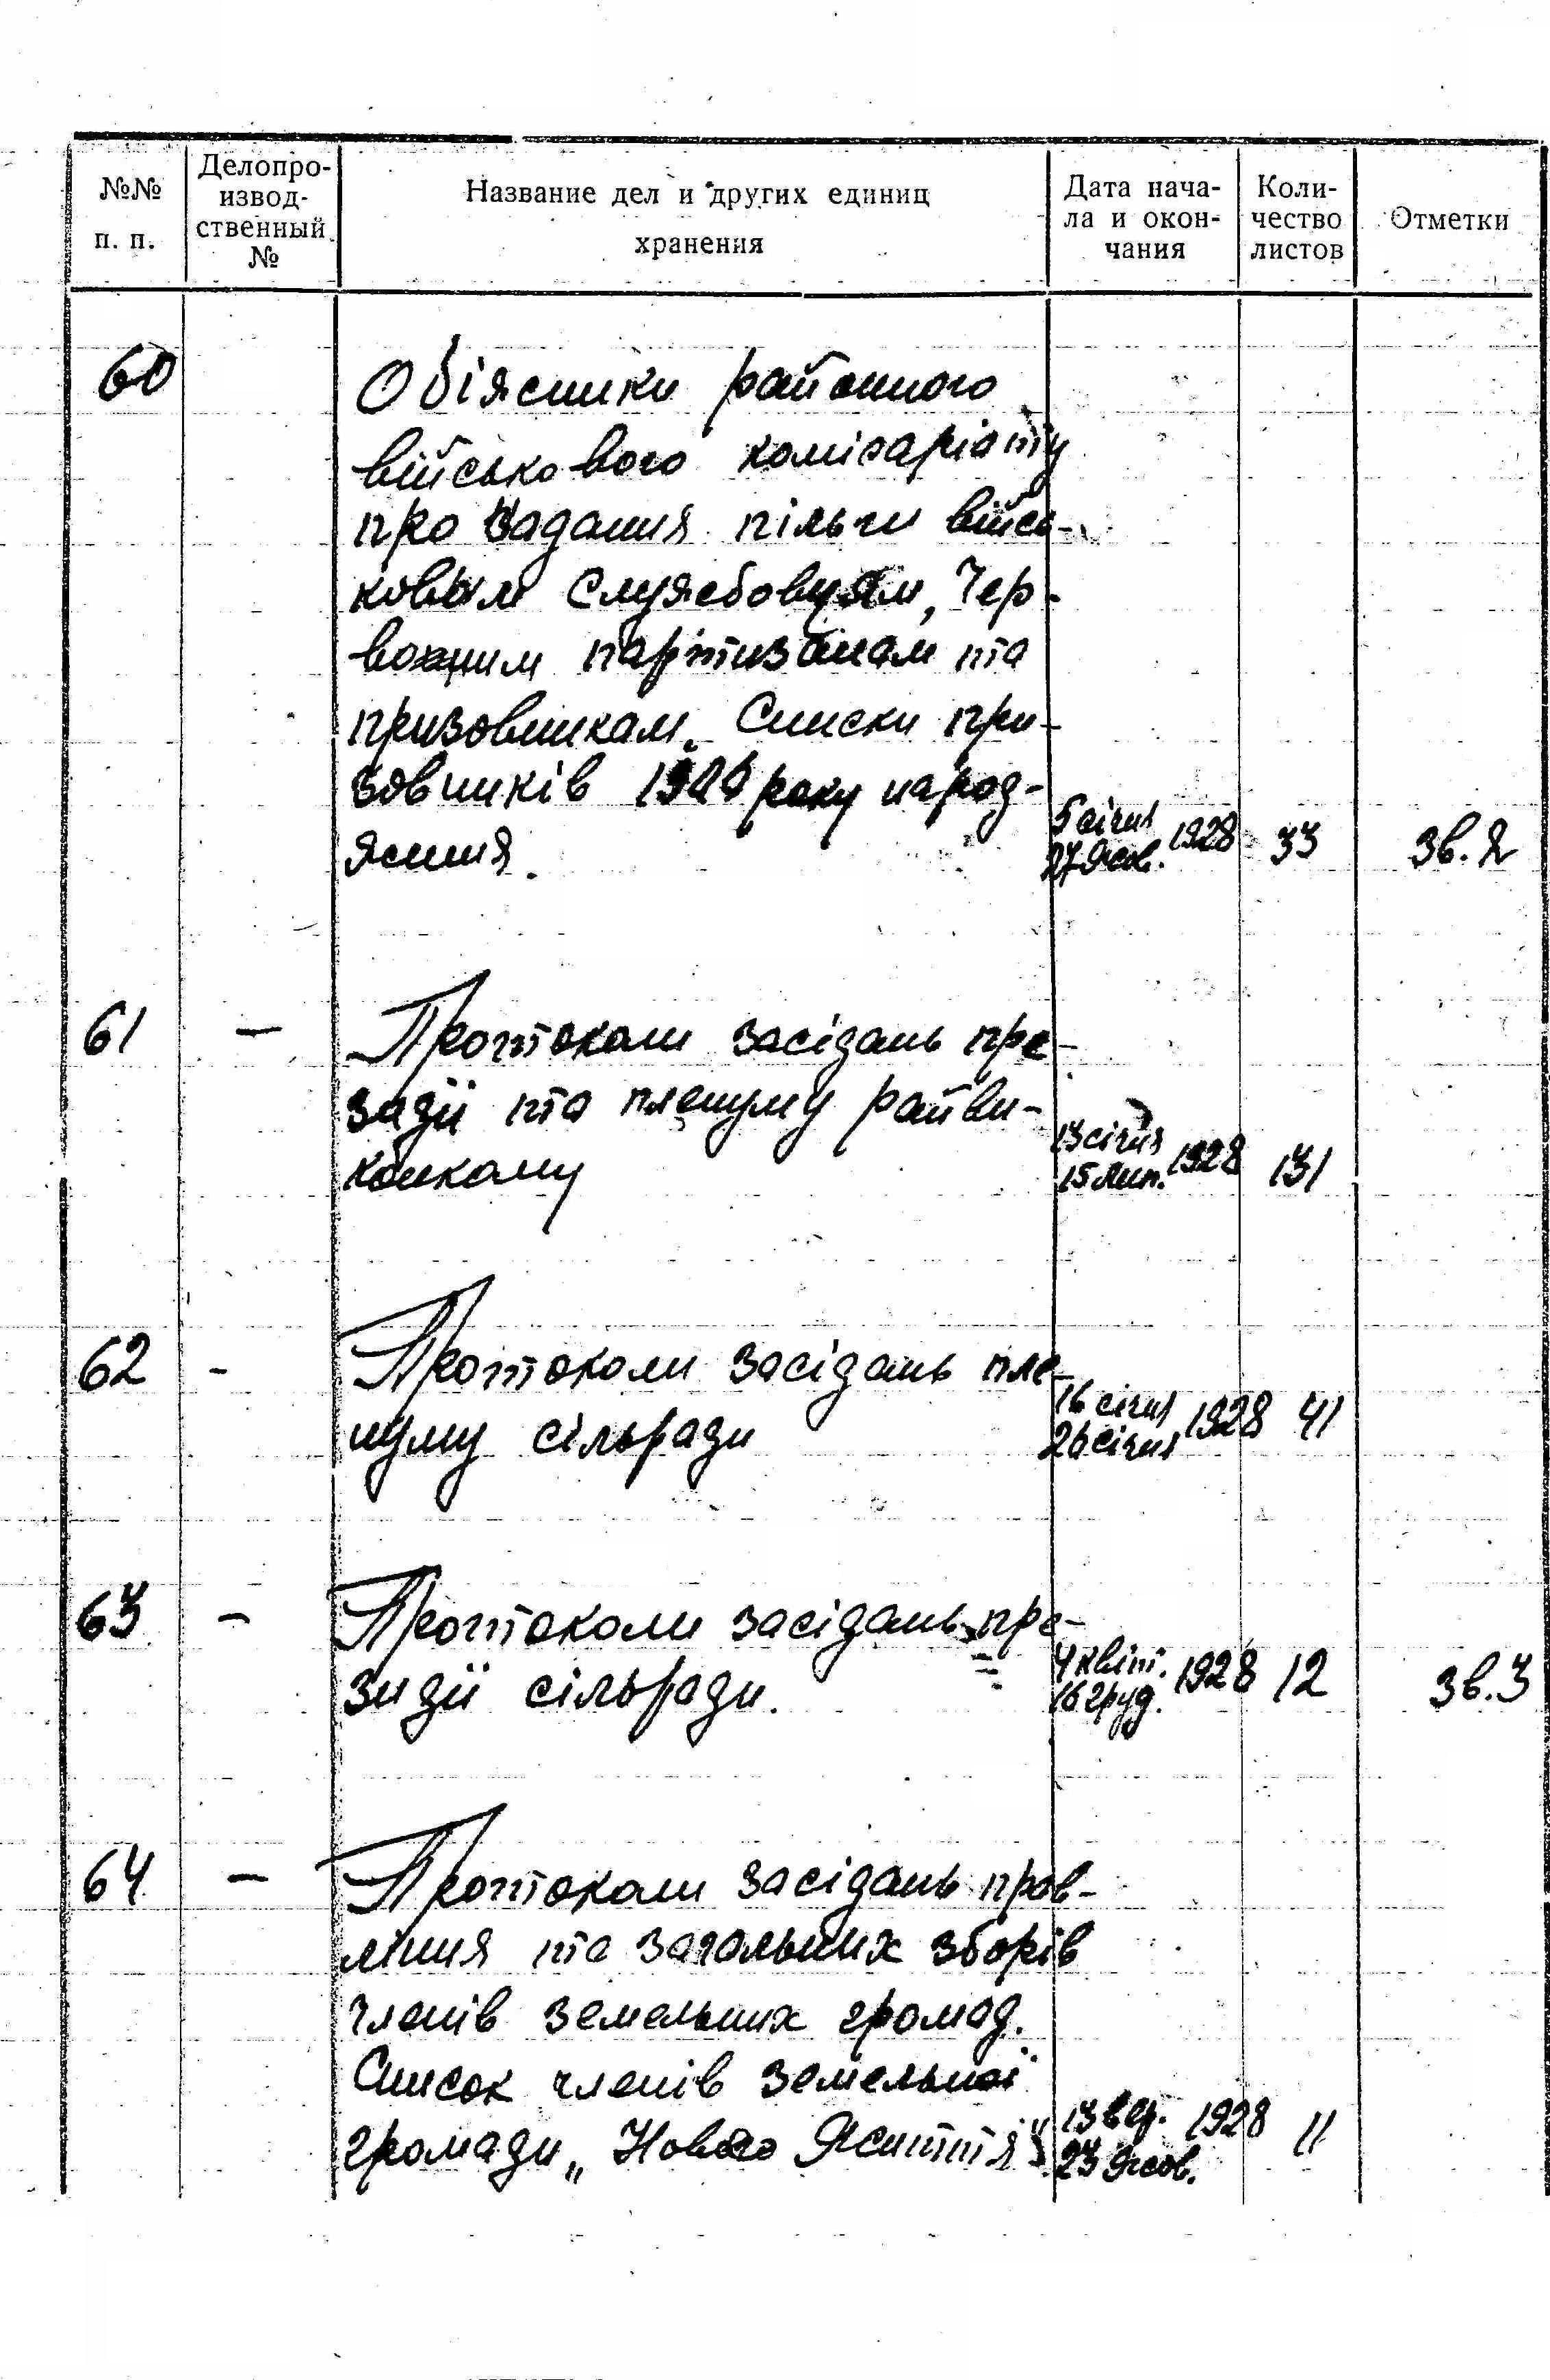 №№ п. п.
Делопро-
извод-
ственный
№
Название дел и других единиц
хранения
Дата нача-
ла и окон-
чания
Коли-
чество
листов
Отметки
60
Обіясники районного
військового комісаріату
про надання пільги війсь-
ковым службовцям, Чер-
воним партизанам та
призовникам. Списки при-
зовників року народ-
ження.
5 січня
27 жов. 1928 33 Зв. 2
61 — Протоколи засідань пре-
зидії та пленуму райви-
конкому
13 січня
15 лип. 1928 131
62 - Протоколи засідань пле-
нуму сільради
16 січня
26 січня 1928 41
63 — Протоколи засідань пре-
зидії сільради.
4 квіт.
16 груд. 1928 12 Зв. 3
64 — Протоколи засідань прав-
ління та загальних зборів
членів земельних громад.
Список членів земельної
громади „Нове Життя"
13 вер.
23 жов. 1928 11